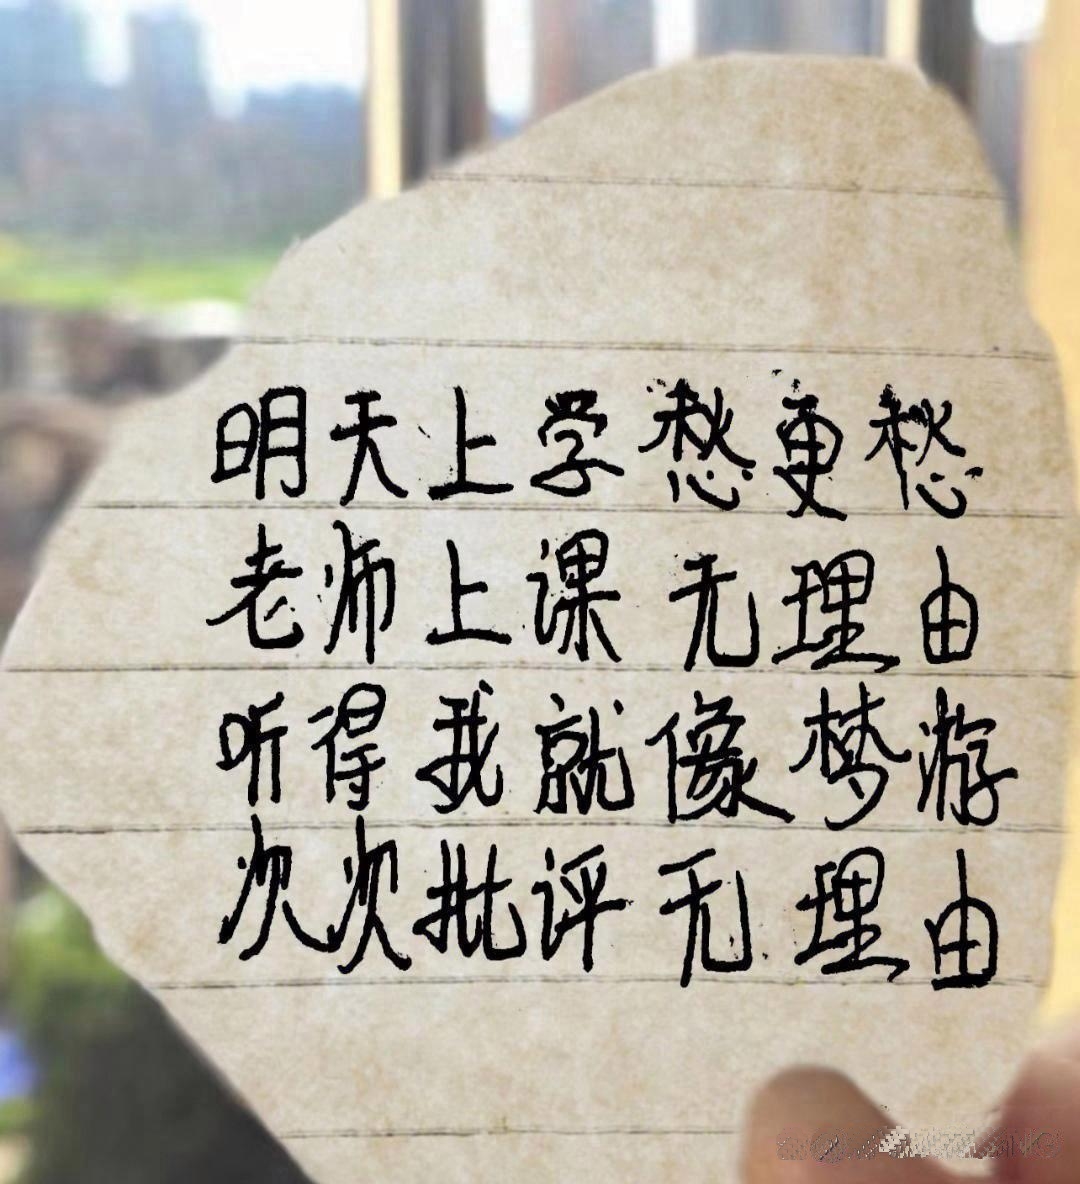 明天上学愁更愁
老师上课无理由
听得我就像梦游
次次批评无理由